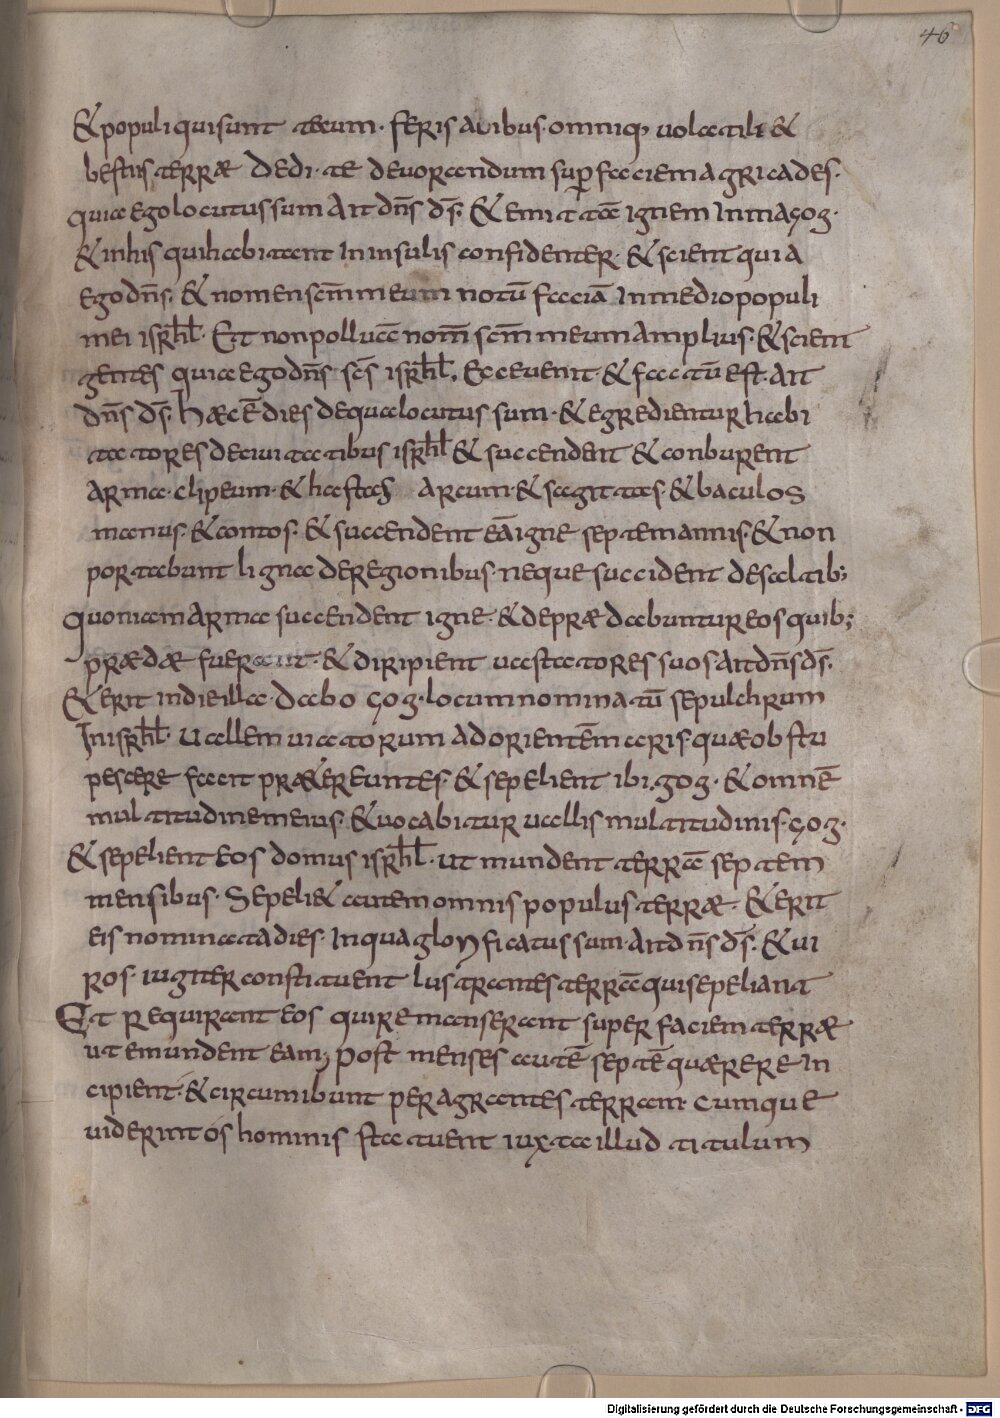 46
& populi qui sunt tecum· feris auibus· omniq; uolatili &
bestiis terrae dedi· te deuorandum sup faciem agri cades·
quia ego locutus sum Ait dn̄s d̄s· & emittā ignem In magog·
& in his qui habitant In insulis confidenter· & scient quia
ego dn̄s· & nomen sc̄m meum notū faciā In medio populi
mei isrl̄· Et non polluā nom̄ sc̄m meum amplius· & scient
gentes quia ego dn̄s· sc̄s isrl̄· Ecce uenit· & factū est· Ait
dn̄s d̄s· haec ē dies de qua locutus sum· & egredientur habi
tatores de ciuitatibus isrl̄ & succendent & conburent
arma· clipeum· & hastas arcum· & sagittas· & baculos
manus· & contos· & succendent eā igne septem annis· & non
portabunt ligna de regionibus· neque succident de saltib;
quoniam arma succendent igne· & depraedabuntur eos quib;
praedae fuerant· & diripient uastatores suos· Ait dn̄s d̄s·
& erit in die illa· dabo gog· locum nominatū sepulchrum
In isrl̄· uallem uiatorum ad orientēm maris· quae obstu
pescere facit praetereuntes· & sepelient ibi· gog· & omnē
multitudinem eius· & uocabitur uallis multitudinis· gog·
& sepelient eos domus isrl̄· ut mundent terrā septem
mensibus· Sepeli& autem omnis populus terrae· & erit
eis nominata dies· In qua glorificatus sum· Ait dn̄s d̄s· & ui
ros· iugiter constituent lustrantes terrā qui sepeliant
Et requirant eos qui remanserant super faciem terrae
ut emundent eam; post menses autē septē quaerere in
cipient· & circumibunt peragrantes terram· cumque
uiderint os hominis statuent iuxta illud titulum
Digitalisierung gefördert durch die Deutsche Forschungsgemeinschaft - DFG